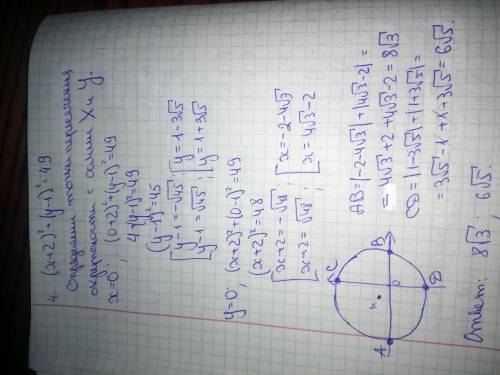 4. (x+2)²+(y-1)²=49
Определим точки пересечения
окружности с осями X и Y.
x=0: (0+2)²+(y-1)²=49
4+(y-1)²=49
(y-1)²=45
[y-1=-√45; [y=1-3√5
[y-1=√45; [y=1+3√5
y=0: (x+2)²+(0-1)²=49
(x+2)²=48
[x+2=-√48; [x=-2-4√3
[x+2=√48; [x=4√3-2
C
A B
0
D
AB=|-2-4√3|+|4√3-2|=
=4√3+2+4√3-2=8√3
CD=|1-3√5|+|1+3√5|=
=3√5-1+1+3√5=6√5
Ответ: 8√3; 6√5.